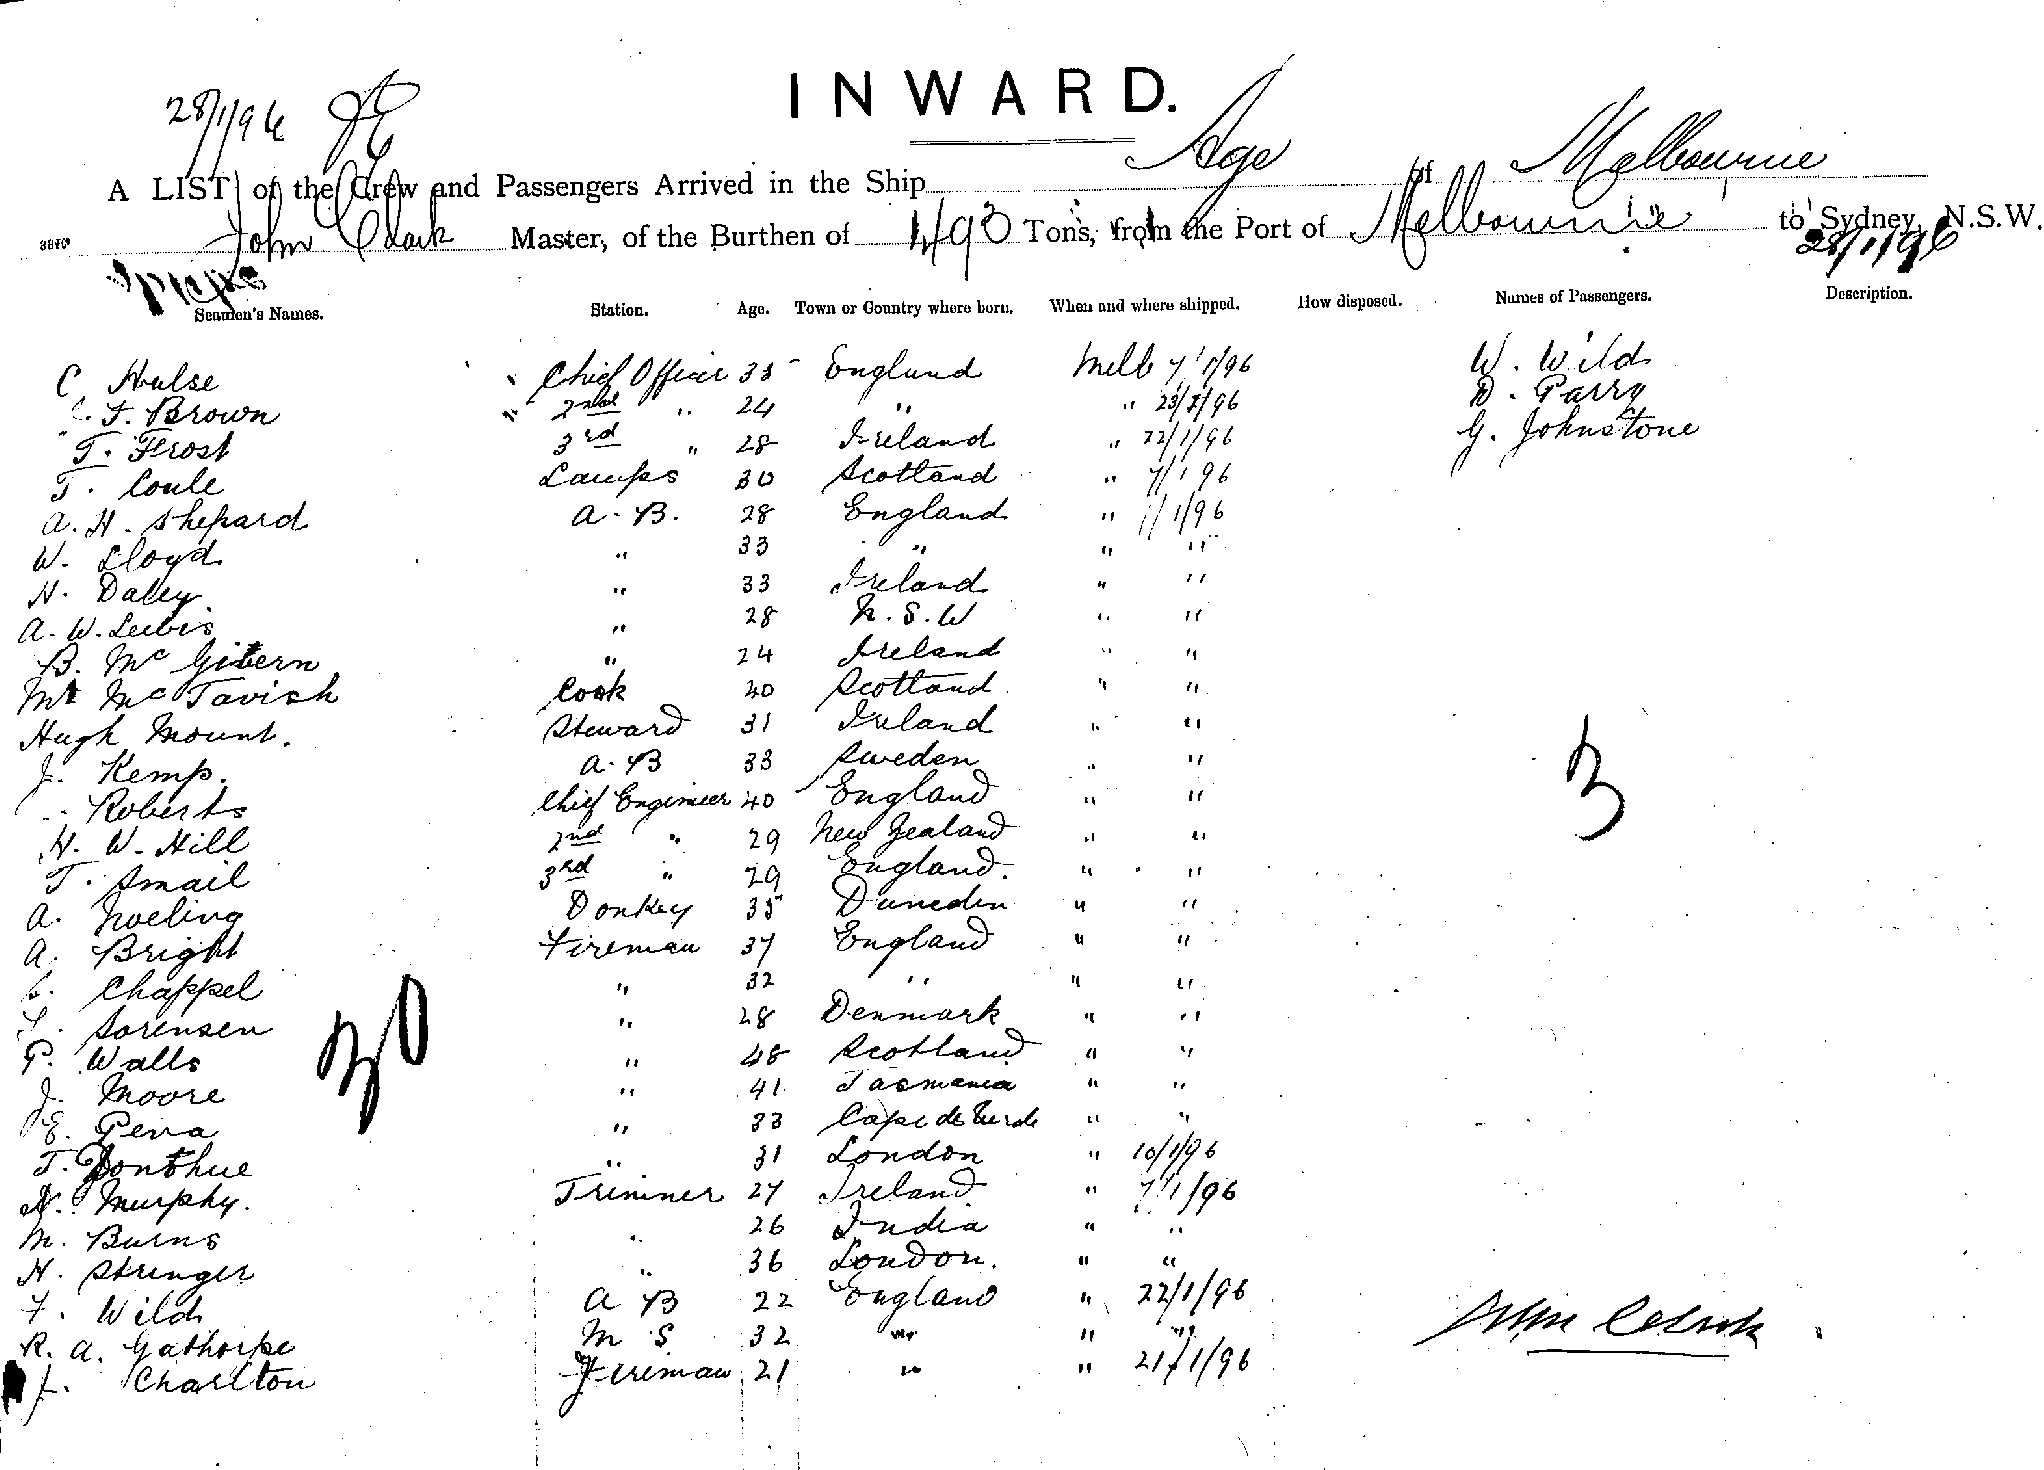 INWARD.
28/1/96
A LIST of the Crew and Passengers Arrived in the Ship Age of Melbourne
John Clark Master, of the Burthen of 1490 Tons, from the Port of Melbourne to Sydney, N.S.W.
28/1/96
Seamen's Names. Station. Age. Town or Country where born. When and where shipped. How disposed. Names of Passengers. Description.
C Hulse Chief Officer 35 England Melb 7/1/96 W. Wild
F. Brown 2nd " 24 " " 23/1/96 D. Parry
T. Frost 3rd " 28 Ireland " 22/1/96 G. Johnstone
T. Coule Lamps 30 Scotland " 7/1 96
A. H. Shepard A.B. 28 England " 7/1/96
W. Lloyd " 33 " " "
H. Daley " 33 Ireland " "
A. W. Lewis " 28 N.S.W " "
B. Mc Givern " 24 Ireland " "
Mc Tavish Cook 40 Scotland " "
Hugh Mount. Steward 31 Ireland " "
J. Kemp. A.B 33 Sweden " "
Roberts Chief Engineer 40 England " "
H. W. Hill 2nd " 29 New Zealand " "
T. Smail 3rd " 29 England. " "
A. Noeling Donkey 35 Dunedin " "
A. Bright Fireman 37 England " "
Chappel " 32 " " "
Sorensen " 28 Denmark " "
P. Walls " 48 Scotland " "
J. Moore " 41 Tasmania " "
E. Pena " 33 Cape de Verde " "
T. Donohue " 31 London " 10/1/96
N. Murphy. Trimmer 27 Ireland " 7/1/96
M. Burns " 26 India " "
H. Stringer " 36 London. " "
F. Wild A B 22 England " 22/1/96
R. A. Gathorpe M S 32 " " "
J. Charlton Fireman 21 " " 21/1/96
30
3
John Clark